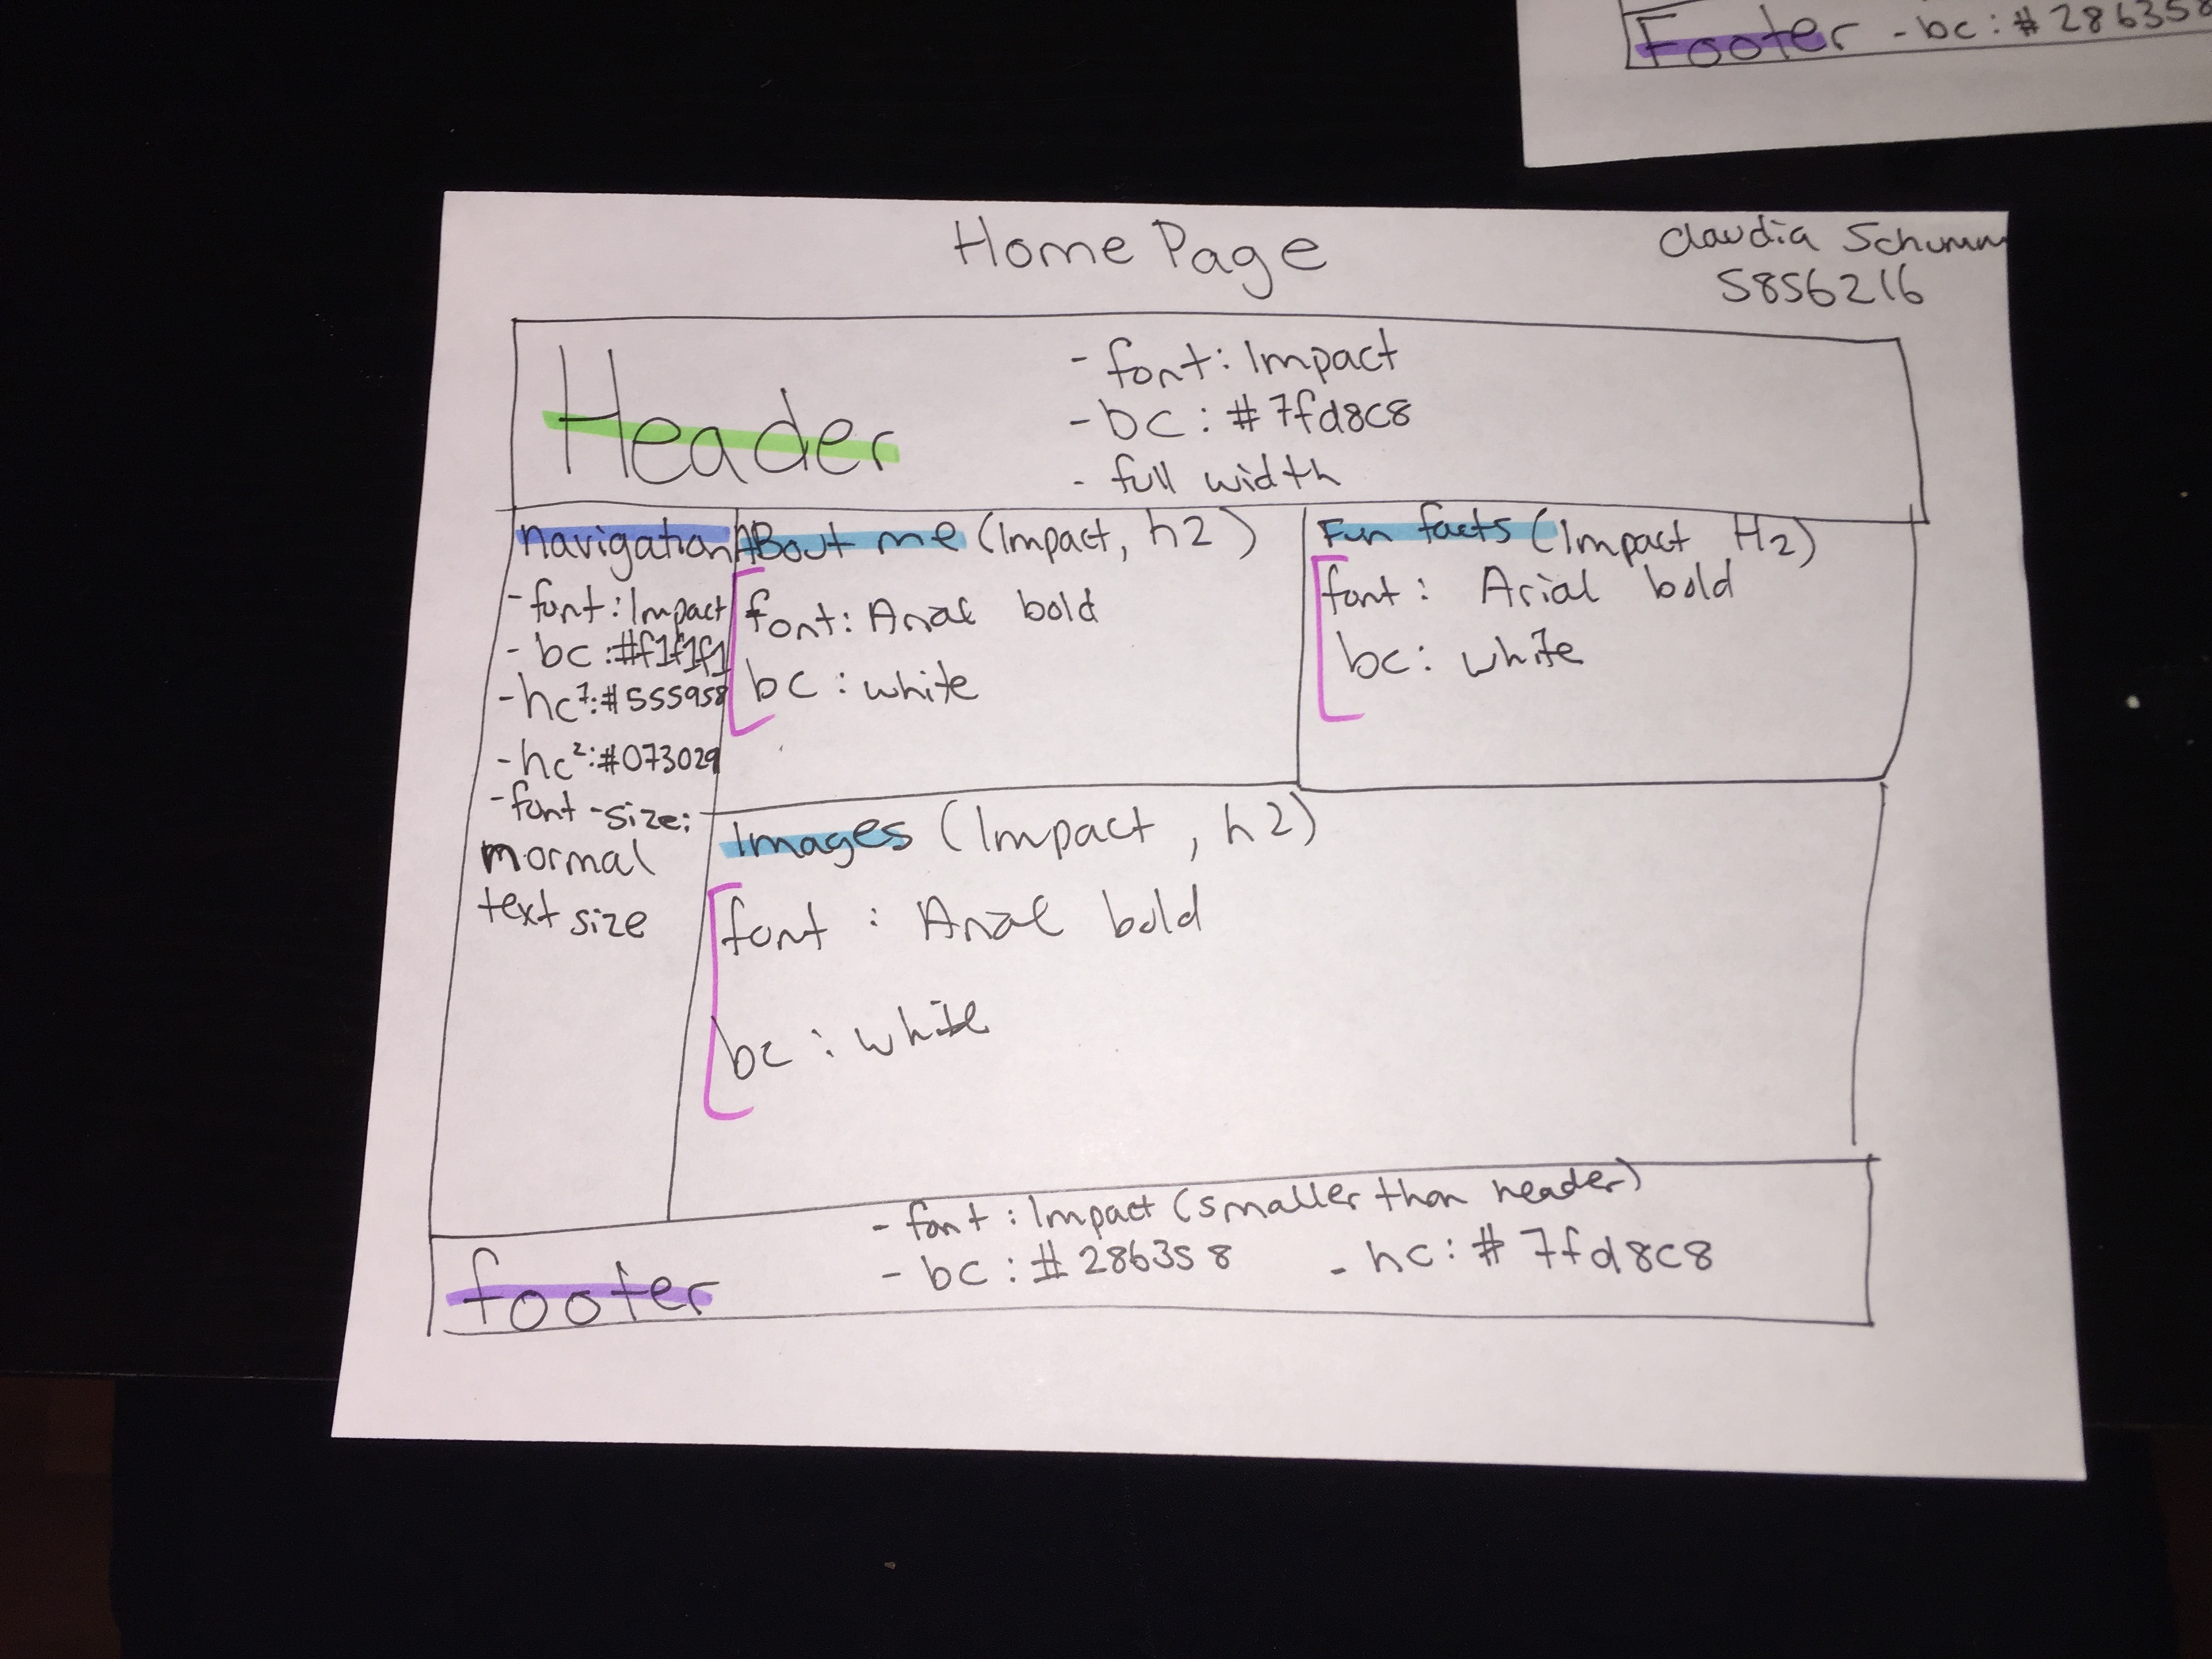 Footer - bc: #286358
Home Page
Claudia Schumm
5856216
Header
- font: Impact
- bc: #7fd8c8
- full width
navigation
- font: Impact
- bc: #f1f1f1
- hc¹: #555958
- hc²: #073029
- font-size:
normal
text size
About me (Impact, h2)
font: Arial bold
bc: white
Fun facts (Impact H2)
font: Arial bold
bc: white
Images (Impact, h2)
font: Arial bold
bc: white
footer
- font: Impact (smaller than header)
- bc: #286358 - hc: #7fd8c8